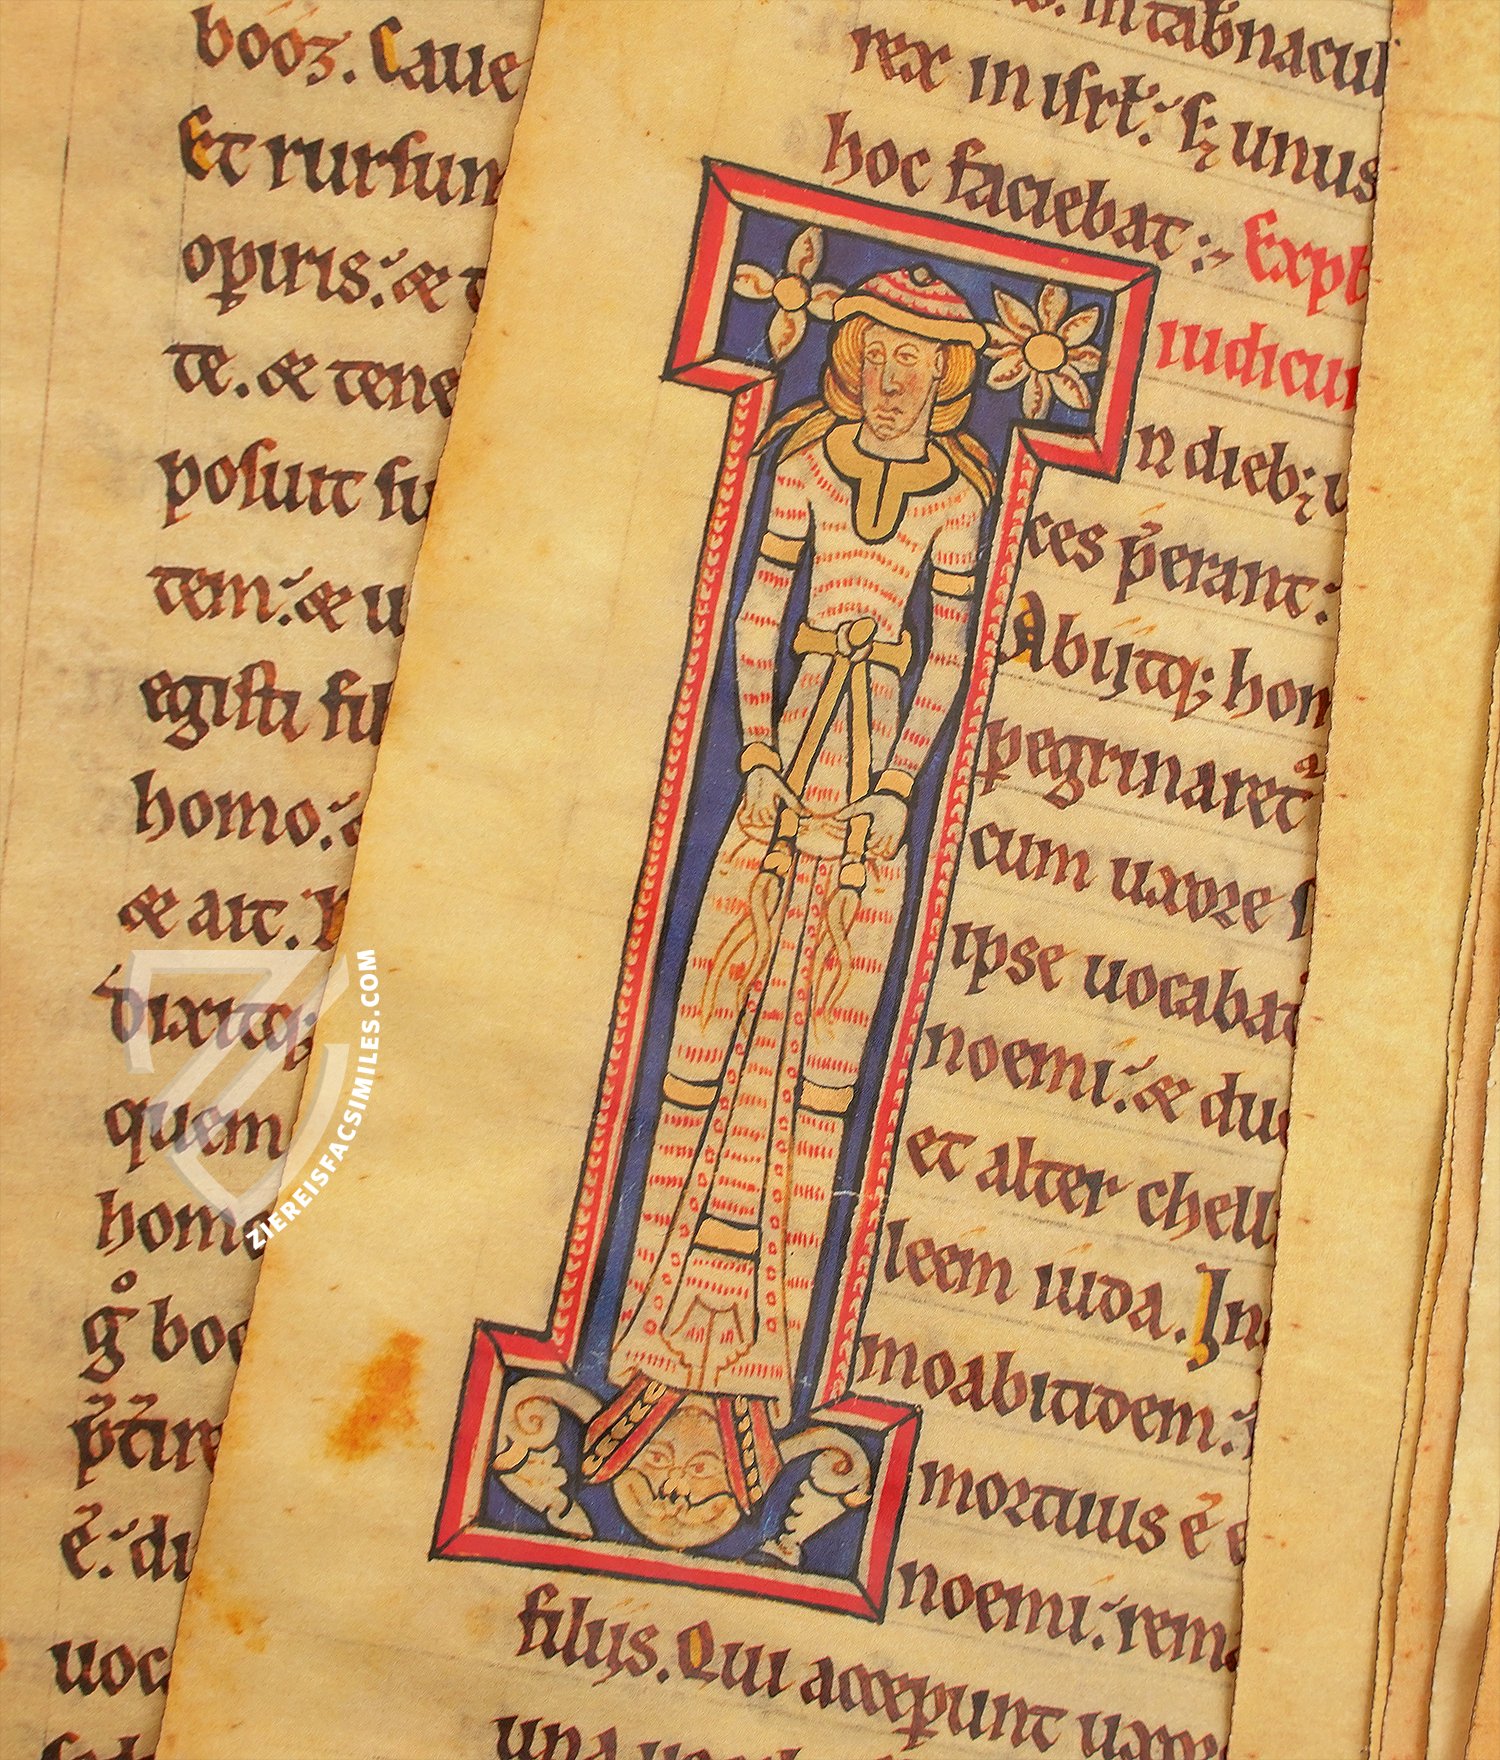 booz. Caue
Et rursum
opiris: &
te. & tene
posuit su
tem: & u
egisti fil
homo:
& ait.
dixitq;
quem
homo
g° boo
p̄tire
ē: du
uoca
in tab̄nacul
rex in isrł: sȝ unus
hoc faciebat :- Expł
iudicu
n dieb;
ces p̄erant:
Abijtq; hom
pegrinaret
cum uxore
ipse uocabat
noemi: & du
et alter chell
leem iuda. In
moabitidem:
mortuus ē e
noemi: rem
filijs. Qui accepunt uxor
ZIEREISFACSIMILES.COM